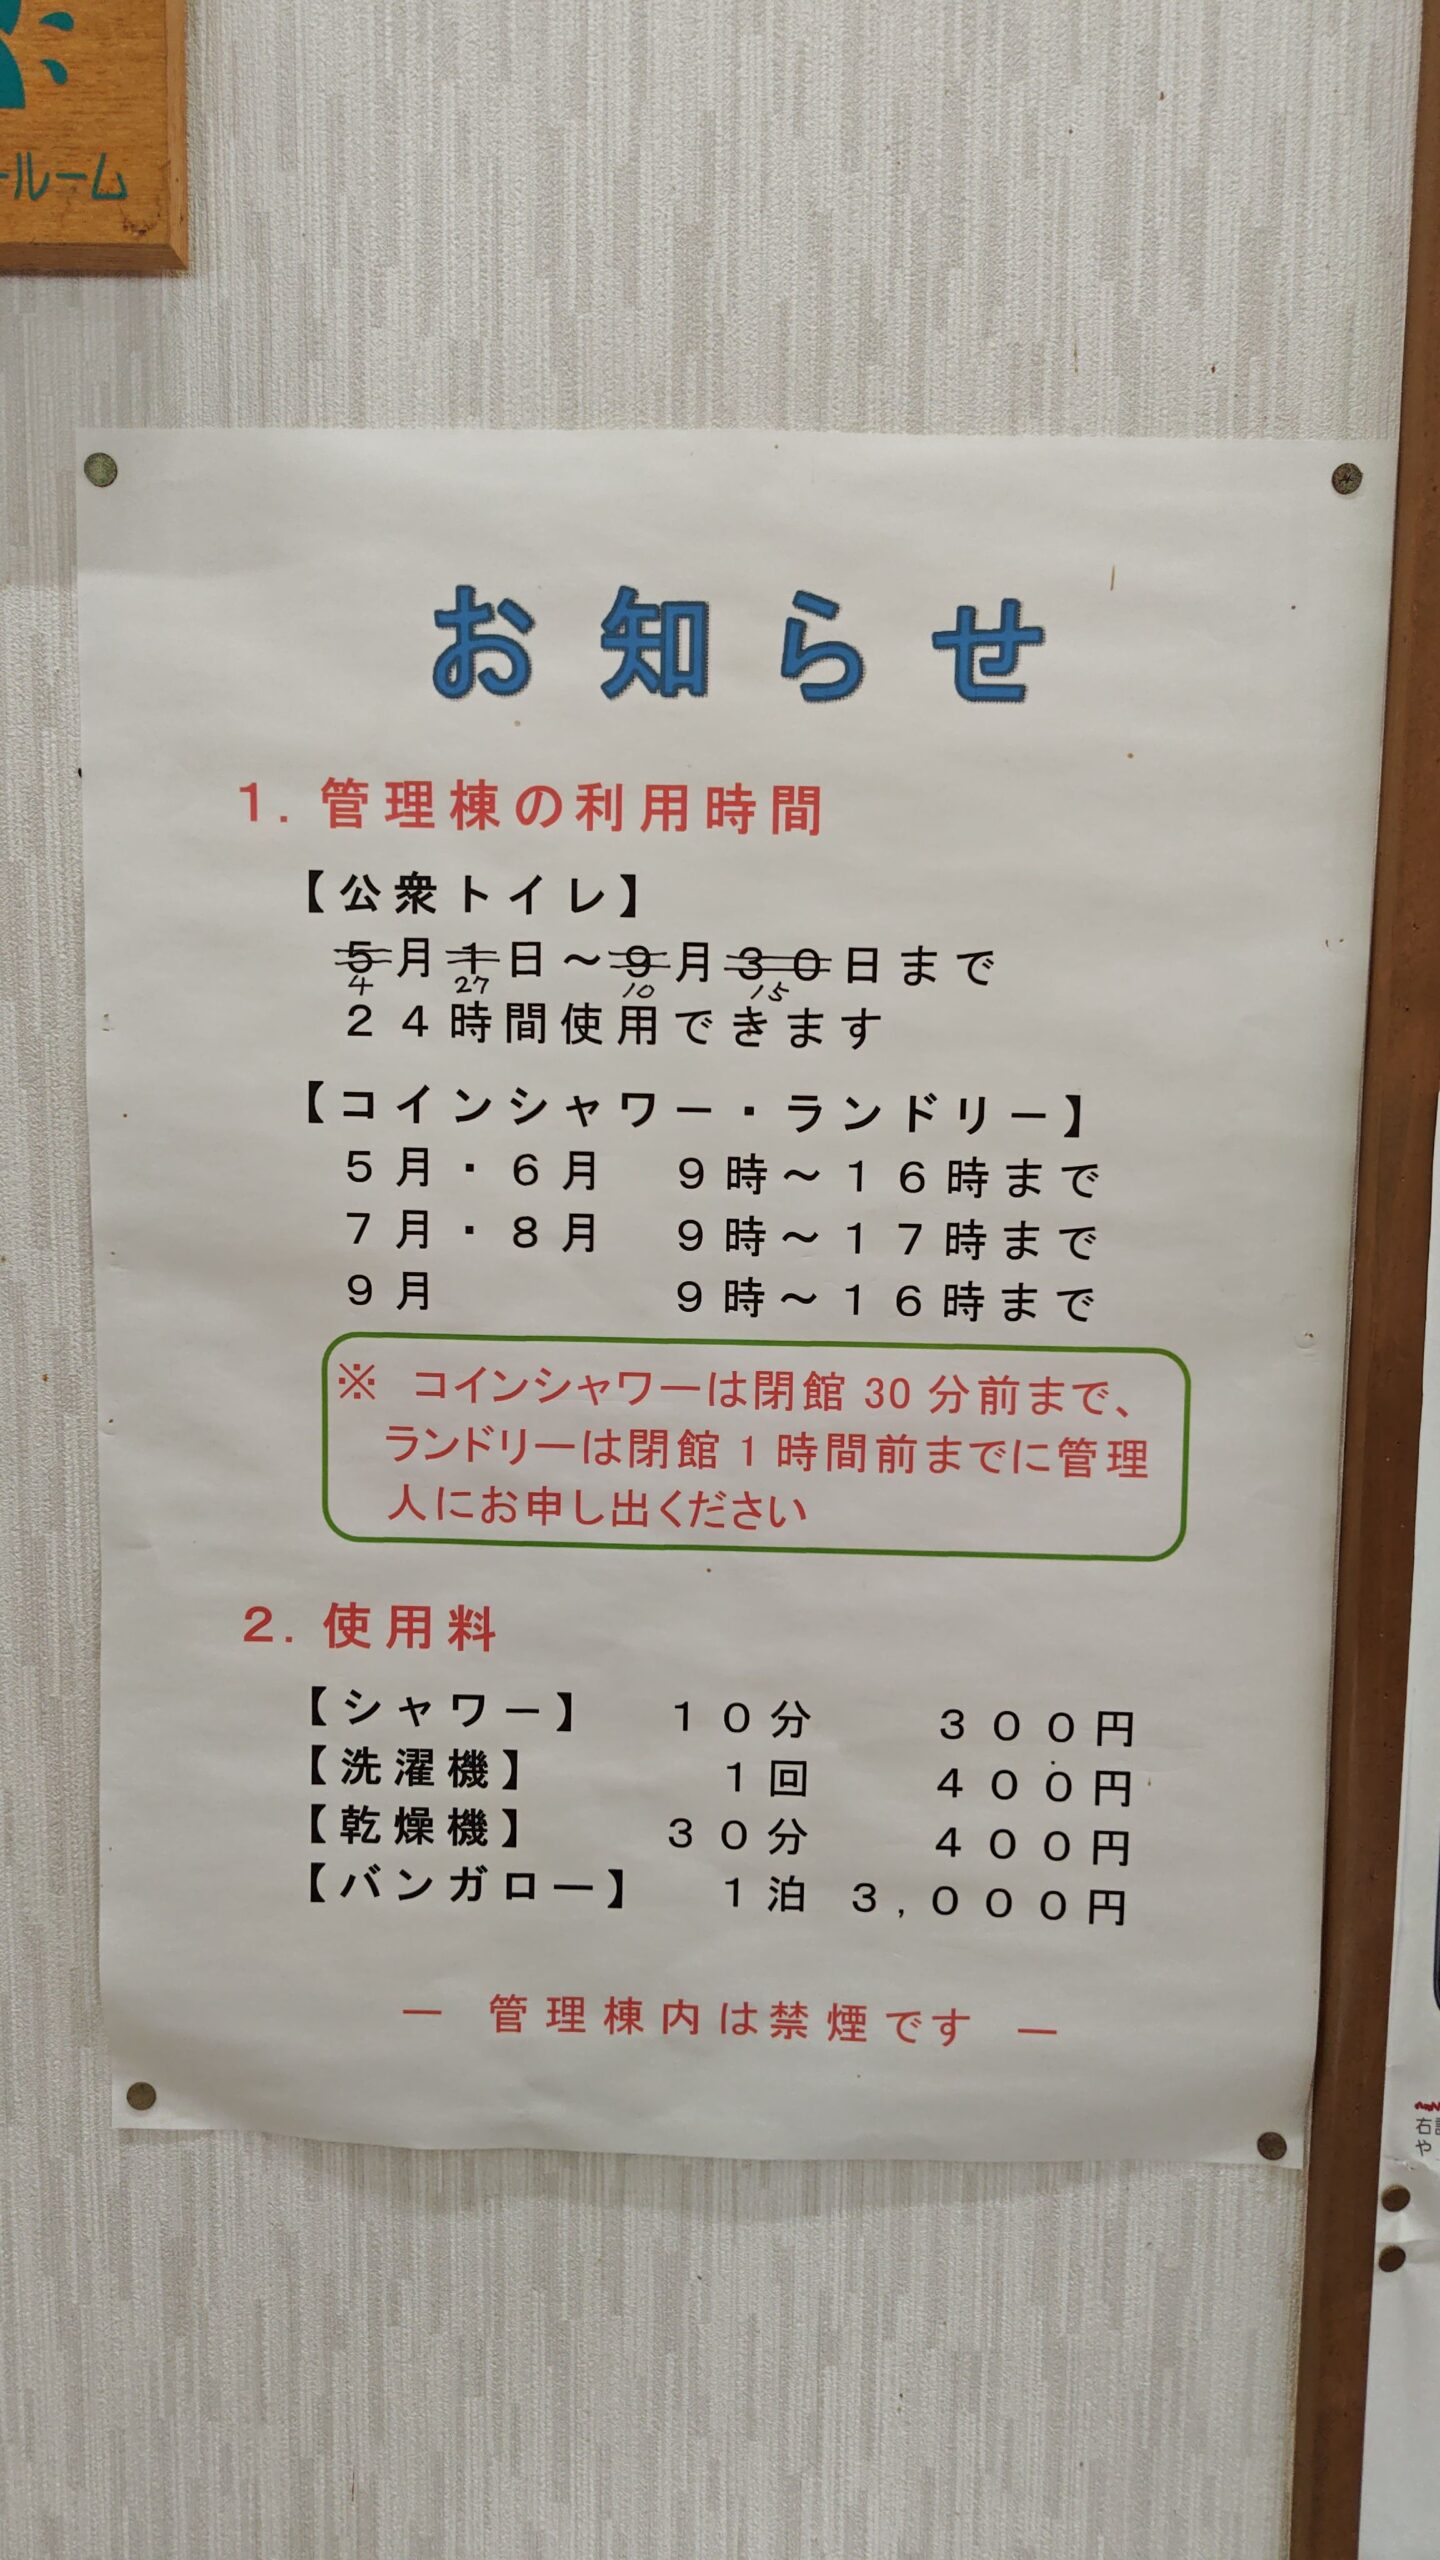 ールーム
お知らせ
1. 管理棟の利用時間
【公衆トイレ】
5月1日～9月30日まで
4 27 10 15
24時間使用できます
【コインシャワー・ランドリー】
5月・6月 9時～16時まで
7月・8月 9時～17時まで
9月 9時～16時まで
※ コインシャワーは閉館30分前まで、
ランドリーは閉館1時間前までに管理
人にお申し出ください
2. 使用料
【シャワー】 10分 300円
【洗濯機】 1回 400円
【乾燥機】 30分 400円
【バンガロー】 1泊 3,000円
― 管理棟内は禁煙です ―
右
や